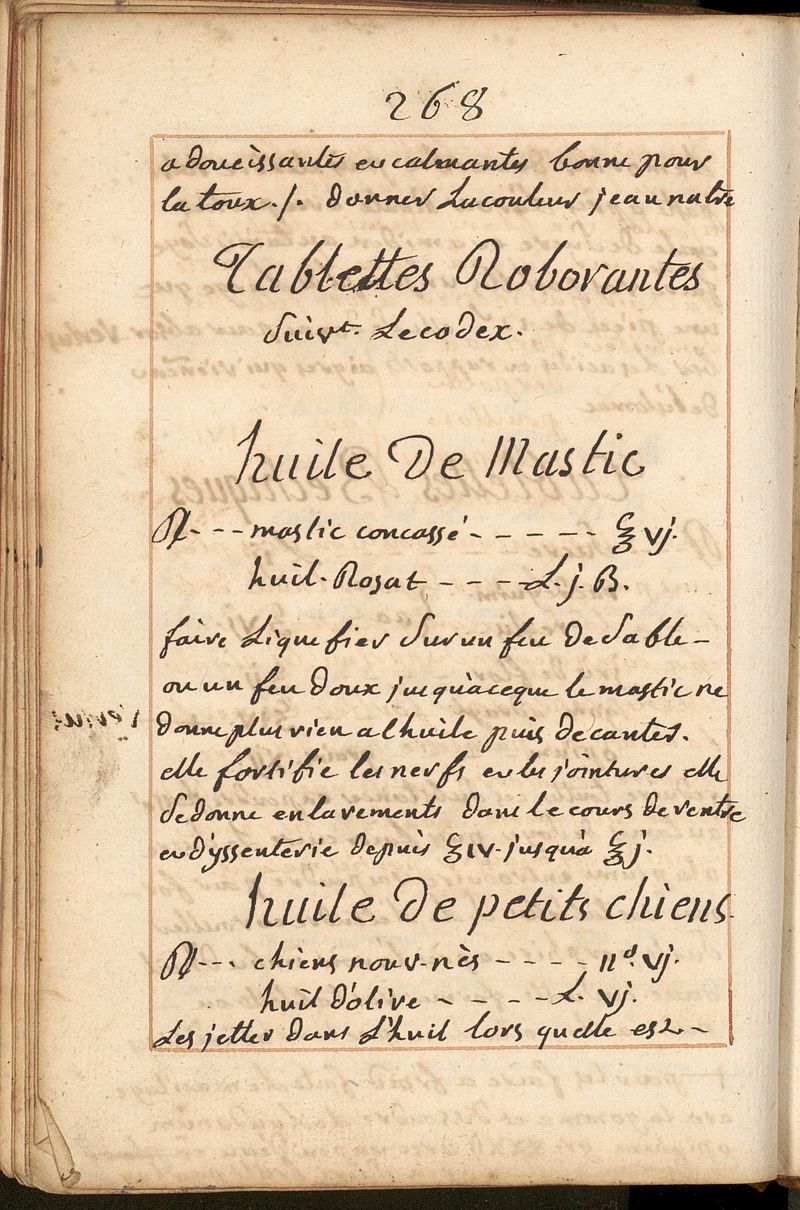 268
adoucissantes eu calmantes bonne pour
la toux ./. donner La couleur jeaunatre
Tablettes Roborantes
Suivt. Le codex.
huile De Mastic
℞ - - - mastic concassé - - - - - ℥ vj.
huil. Rosat - - - - L. j. B.
faire Liquefier Sur un feu De Sable -
ou un feu doux jusqu'a ceque le mastic ne
donne plus rien a l huile puis decantes.
elle fortifie les nerfs eu les jointures elle
Se donne en lavements dans le cours de ventre
eu dyssenterie depuis ℥ iv. jusqu'a ℥ j.
huile De petits chiens.
℞ - - - chiens nouv-nès - - - - nd. vj.
huil d'olive - - - - L. vj.
Les jetter dans L'huil lors quelle est -